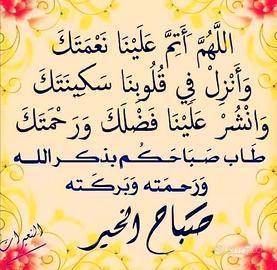 اللَّهُمَّ أَتِمَّ عَلَيْنَا نَعْمَتَكَ
وَأَنْزِلْ فِي قُلُوبِنَا سَكِينَتَكَ
وَانْشُرْ عَلَيْنَا فَضْلَكَ وَرَحْمَتَكَ
طَابَ صَبَاحَكُم بذكر الله
وَرَحمَته وَبَركَته
صَبَاح الخير